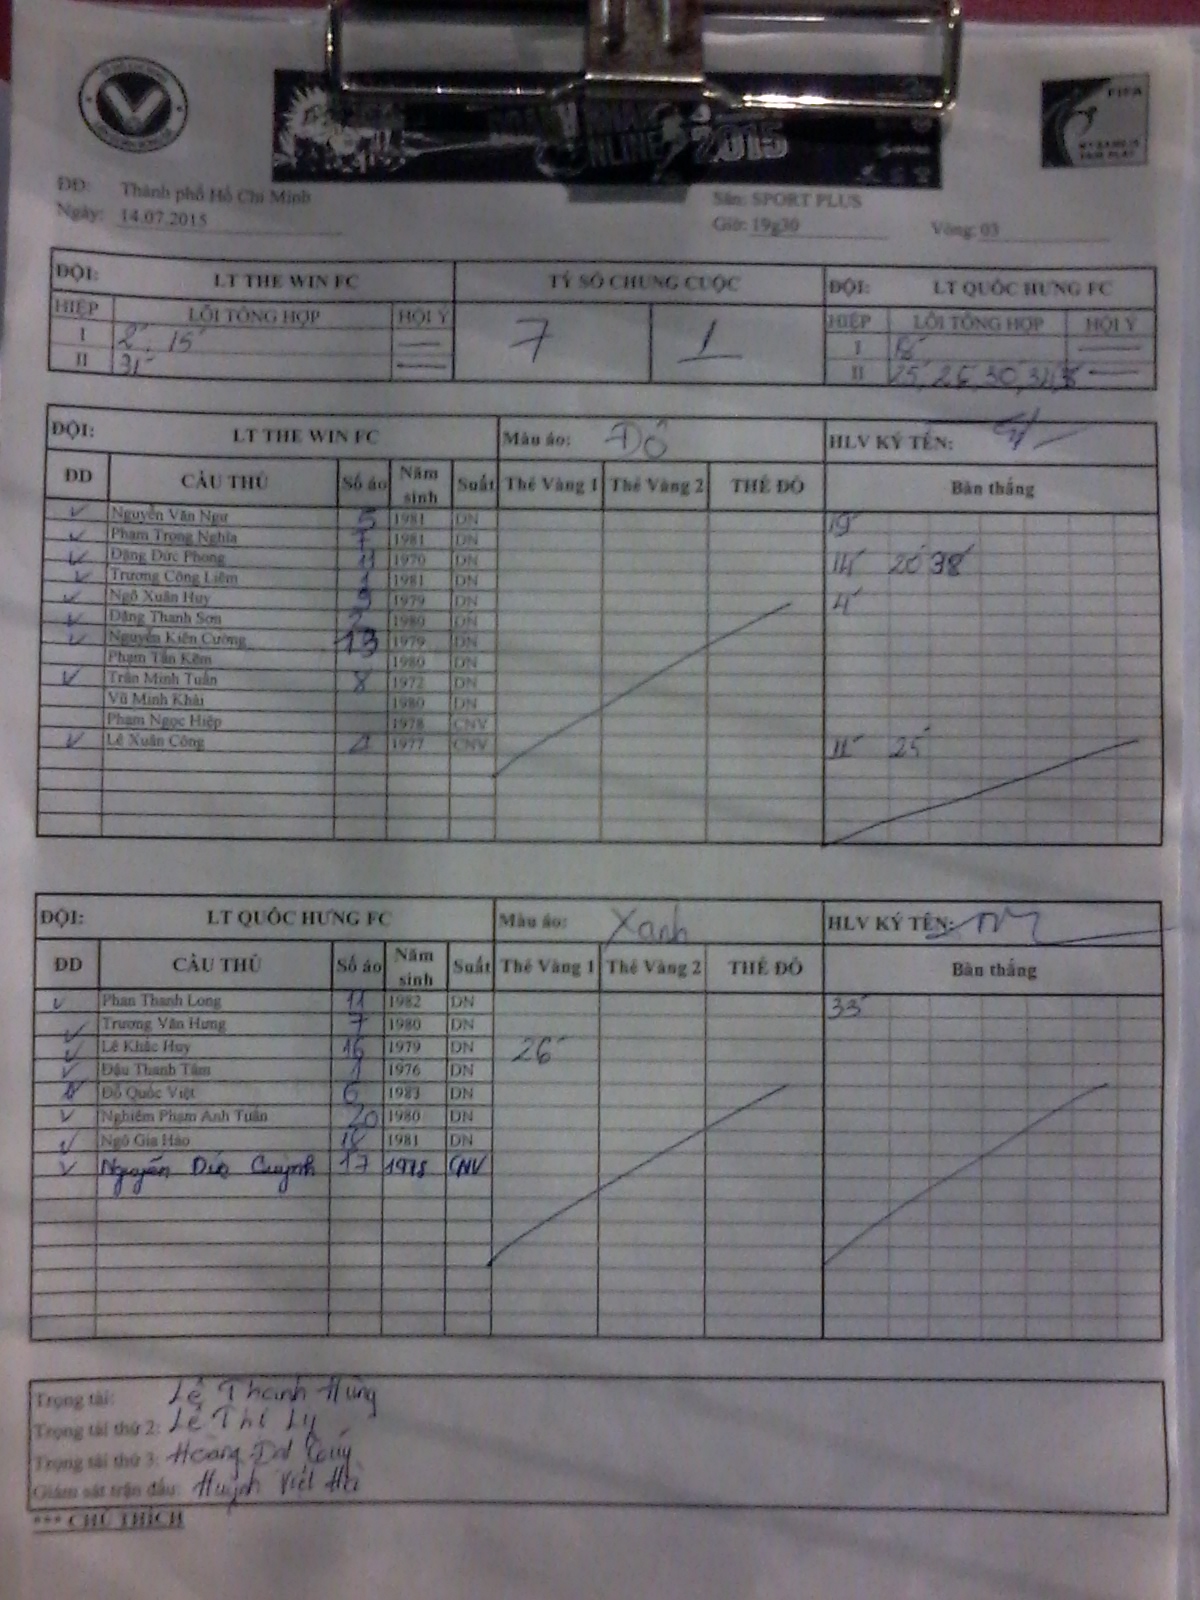 2015
FIFA
MY GAME IS
FAIR PLAY
ĐĐ: Thành phố Hồ Chí Minh Sân: SPORT PLUS
Ngày: 14.07.2015 Giờ: 19g30 Vòng: 03
ĐỘI: LT THE WIN FC TỶ SỐ CHUNG CUỘC ĐỘI: LT QUỐC HƯNG FC
HIỆP LỖI TỔNG HỢP HỘI Ý 7 1 HIỆP LỖI TỔNG HỢP HỘI Ý
I 2' 15' I 18'
II 31' II 25', 26', 30', 34',
ĐỘI: LT THE WIN FC Màu áo: Đỏ HLV KÝ TÊN:
ĐD CẦU THỦ Số áo Năm sinh Suất Thẻ Vàng 1 Thẻ Vàng 2 THẺ ĐỎ Bàn thắng
Nguyễn Văn Ngư 5 1981 DN 19'
Phạm Trọng Nghĩa 7 1981 DN
Đặng Đức Phong 11 1970 DN 14' 20' 38'
Trương Công Liêm 1 1981 DN
Ngô Xuân Huy 9 1979 DN 4'
Đặng Thanh Sơn 2 1980 DN
Nguyễn Kiên Cường 13 1979 DN
Phạm Tấn Kẽm 1980 DN
Trần Minh Tuấn 8 1972 DN
Vũ Minh Khải 1980 DN
Phạm Ngọc Hiệp 1978 CNV
Lê Xuân Công 4 1977 CNV 11' 25'
ĐỘI: LT QUỐC HƯNG FC Màu áo: Xanh HLV KÝ TÊN:
ĐD CẦU THỦ Số áo Năm sinh Suất Thẻ Vàng 1 Thẻ Vàng 2 THẺ ĐỎ Bàn thắng
Phan Thanh Long 11 1982 DN 33'
Trương Văn Hưng 7 1980 DN
Lê Khắc Huy 16 1979 DN 26'
Đậu Thanh Tâm 1 1976 DN
Đỗ Quốc Việt 6 1983 DN
Nghiêm Phạm Anh Tuấn 20 1980 DN
Ngô Gia Hào 18 1981 DN
Nguyễn Đức Quỳnh 17 1978 CNV
Trọng tài: Lê Thanh Hùng
Trọng tài thứ 2: Lê Thị Ly
Trọng tài thứ 3: Hoàng Quý
Giám sát trận đấu: Huỳnh Viết Hà
*** CHÚ THÍCH